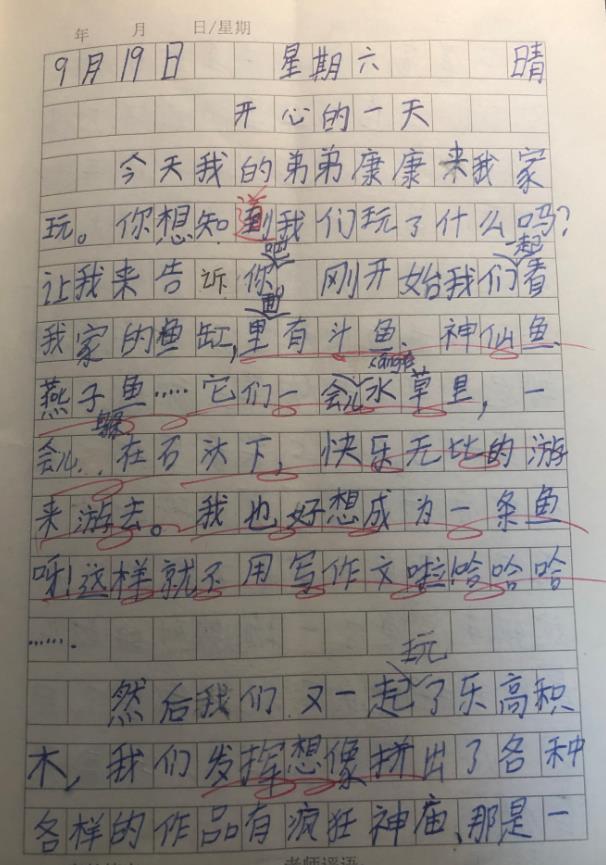 年 月 日/星期
9月19日 星期六 晴
开心的一天
今天我的弟弟康康来我家
玩。你想知道我们玩了什么吗?
让我来告诉你吧 刚开始我们一起看
我家的鱼缸,里面有斗鱼、神仙鱼、
燕子鱼……它们一会儿水草里,一
会儿躲在石头下,快乐无比的游
来游去。我也好想成为一条鱼
呀!这样就不用写作文啦!哈哈哈
……
然后我们又一起玩了乐高积
木,我们发挥想像拼出了各种
各样的作品有疯狂神庙、那是一
老师评语